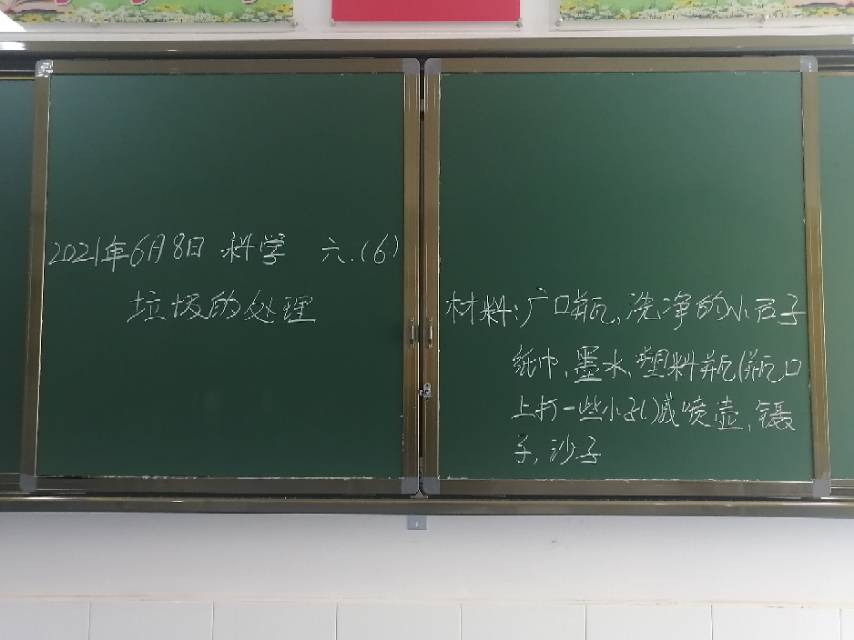 2021年6月8日 科学 六.(6)
垃圾的处理
材料:广口瓶、洗净的小石子
纸巾、墨水、塑料瓶(瓶口
上打一些小孔)或喷壶、镊
子、沙子